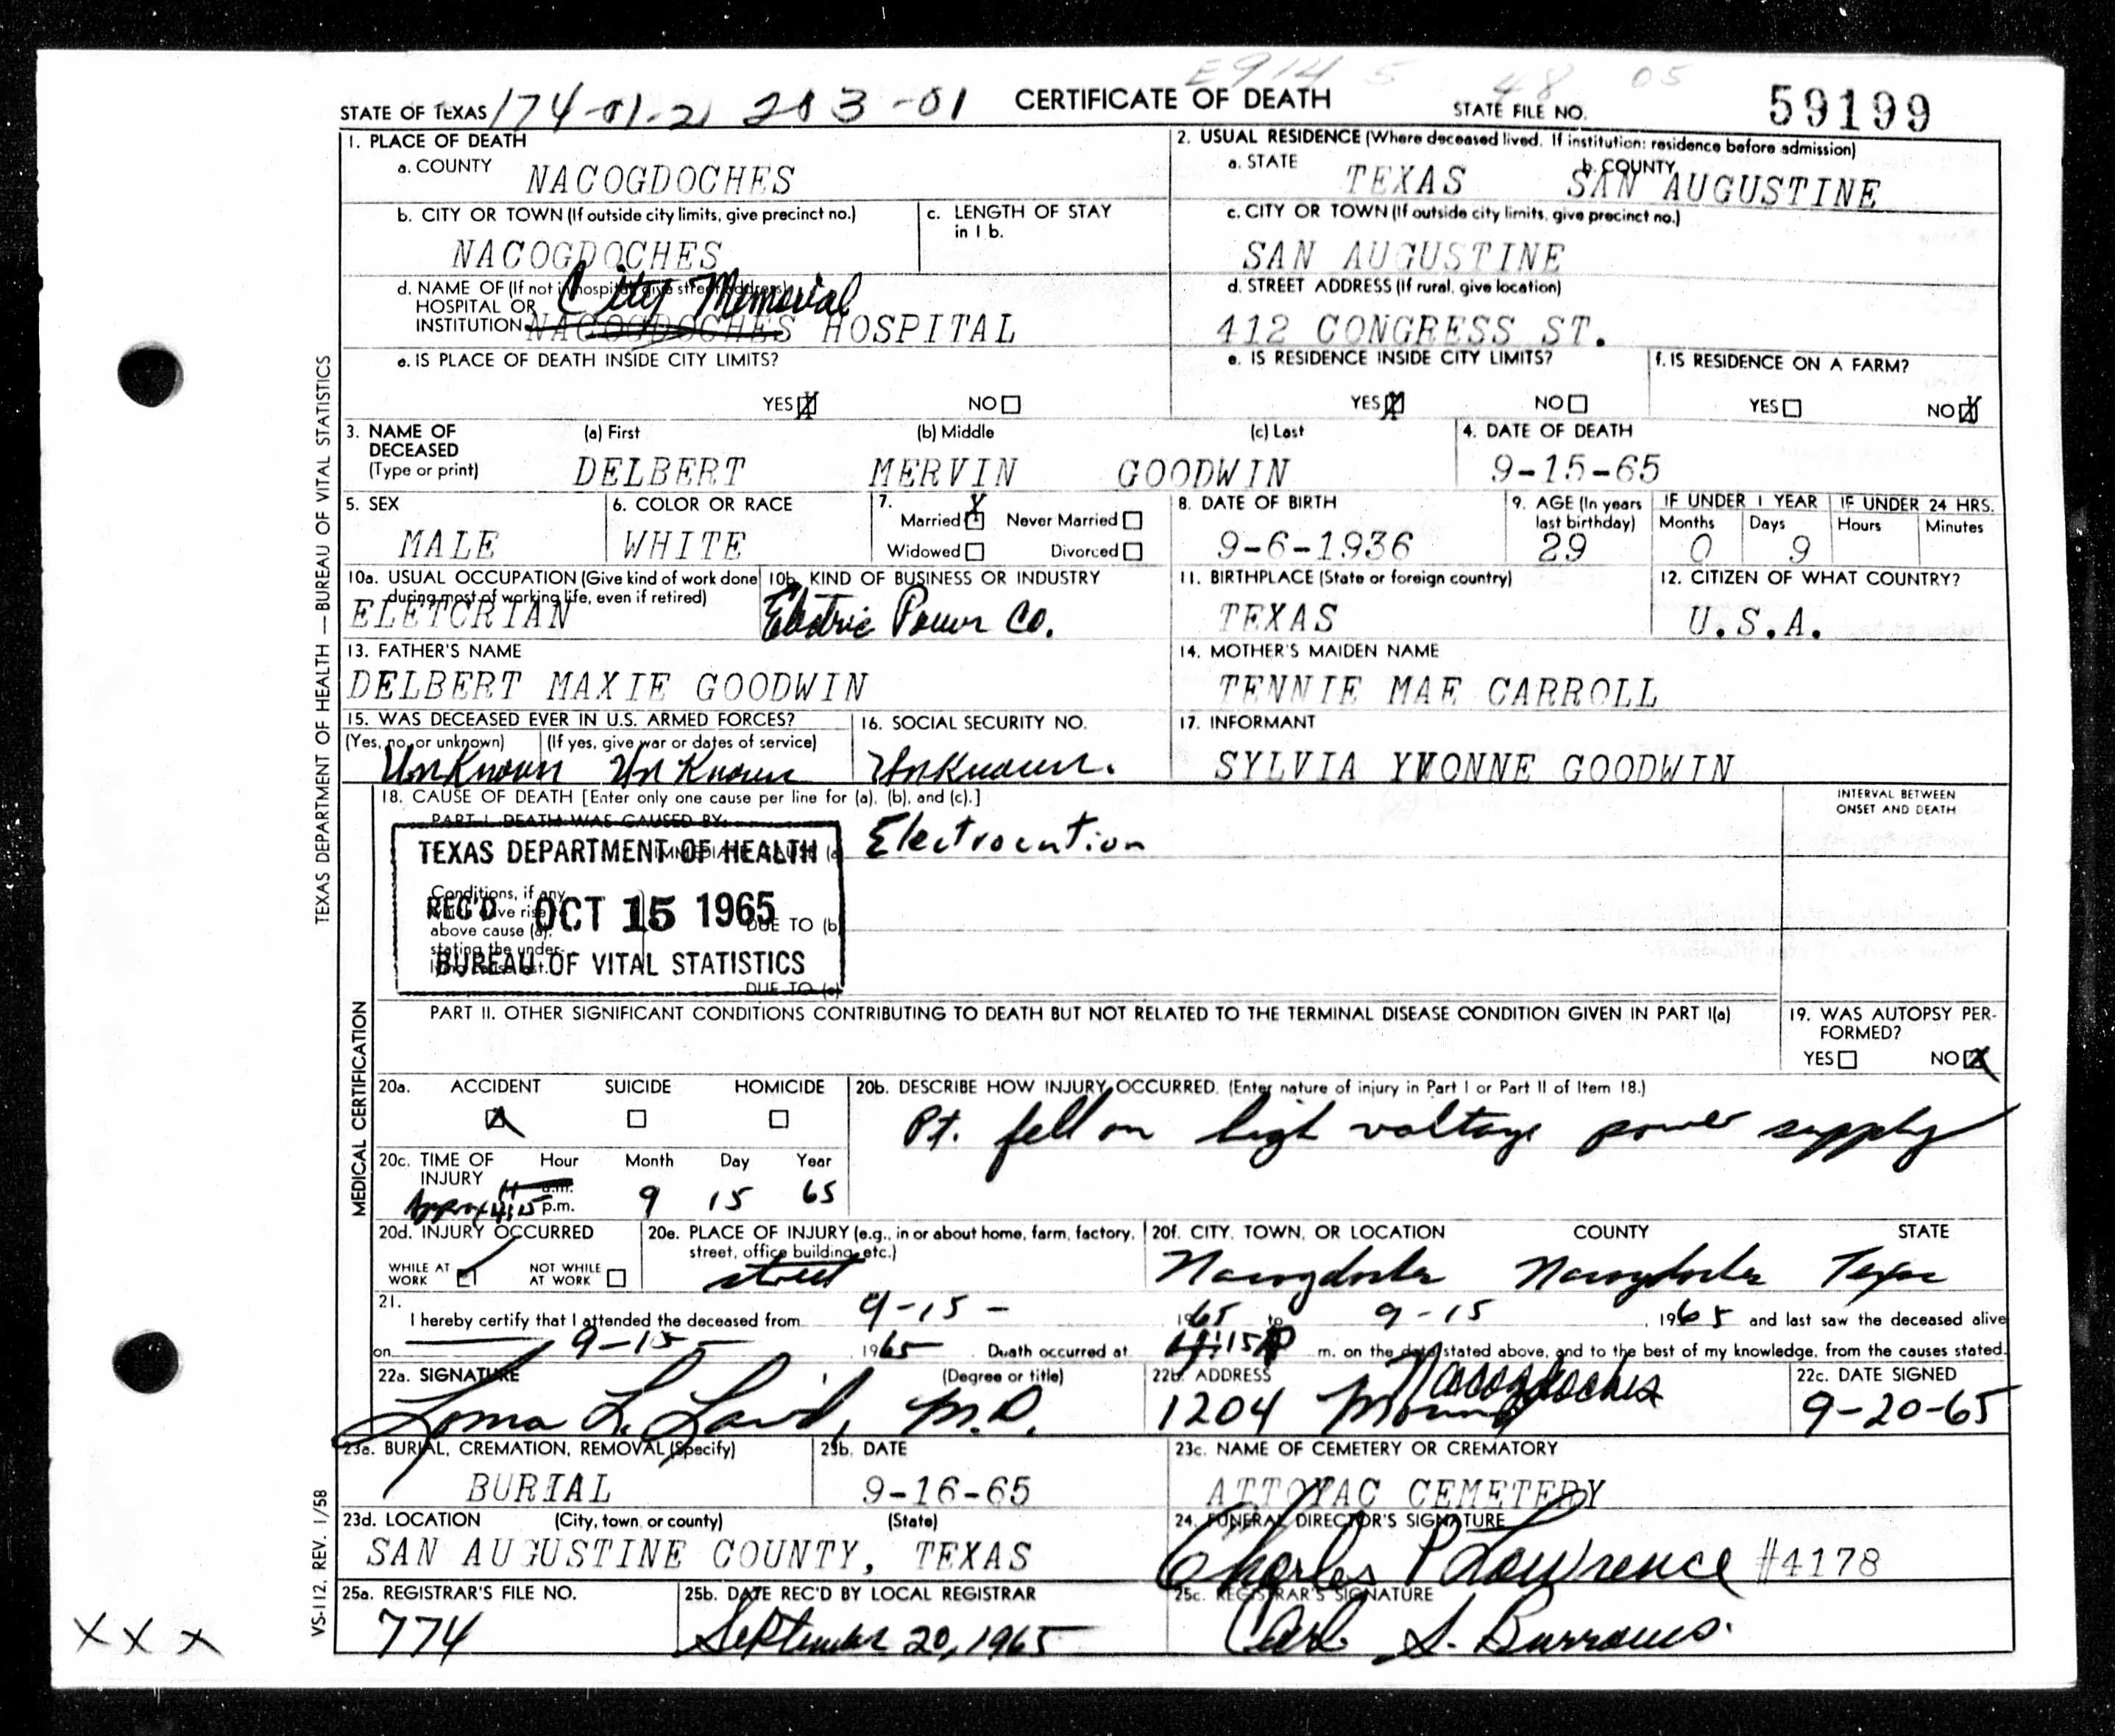 E914 5 48 05
STATE OF TEXAS 174-01-2 203-01 CERTIFICATE OF DEATH STATE FILE NO. 59199
1. PLACE OF DEATH
a. COUNTY NACOGDOCHES
2. USUAL RESIDENCE (Where deceased lived. If institution: residence before admission)
a. STATE TEXAS b. COUNTY SAN AUGUSTINE
b. CITY OR TOWN (If outside city limits, give precinct no.)
NACOGDOCHES
c. LENGTH OF STAY in 1 b.
c. CITY OR TOWN (If outside city limits, give precinct no.)
SAN AUGUSTINE
d. NAME OF (If not in hospital, give street address)
HOSPITAL OR City Memorial
INSTITUTION NACOGDOCHES HOSPITAL
d. STREET ADDRESS (If rural, give location)
412 CONGRESS ST.
e. IS PLACE OF DEATH INSIDE CITY LIMITS?
YES X NO
e. IS RESIDENCE INSIDE CITY LIMITS?
YES X NO
f. IS RESIDENCE ON A FARM?
YES NO X
3. NAME OF DECEASED (Type or print)
(a) First (b) Middle (c) Last
DELBERT MERVIN GOODWIN
4. DATE OF DEATH
9-15-65
5. SEX
MALE
6. COLOR OR RACE
WHITE
7. X
Married Never Married
Widowed Divorced
8. DATE OF BIRTH
9-6-1936
9. AGE (In years last birthday)
29
IF UNDER 1 YEAR IF UNDER 24 HRS.
Months Days Hours Minutes
0 9
10a. USUAL OCCUPATION (Give kind of work done
during most of working life, even if retired)
ELETCRIAN
10b. KIND OF BUSINESS OR INDUSTRY
Electric Power Co.
11. BIRTHPLACE (State or foreign country)
TEXAS
12. CITIZEN OF WHAT COUNTRY?
U.S.A.
13. FATHER'S NAME
DELBERT MAXIE GOODWIN
14. MOTHER'S MAIDEN NAME
TENNIE MAE CARROLL
15. WAS DECEASED EVER IN U.S. ARMED FORCES?
(Yes, no, or unknown) (If yes, give war or dates of service)
Unknown Unknown
16. SOCIAL SECURITY NO.
Unknown.
17. INFORMANT
SYLVIA YVONNE GOODWIN
18. CAUSE OF DEATH [Enter only one cause per line for (a), (b), and (c).]
INTERVAL BETWEEN
ONSET AND DEATH
PART I. DEATH WAS CAUSED BY:
IMMEDIATE CAUSE (a) Electrocution
Conditions, if any,
which gave rise to
above cause (a),
stating the under-
lying cause last.
DUE TO (b)
DUE TO (c)
TEXAS DEPARTMENT OF HEALTH
REC'D OCT 15 1965
BUREAU OF VITAL STATISTICS
PART II. OTHER SIGNIFICANT CONDITIONS CONTRIBUTING TO DEATH BUT NOT RELATED TO THE TERMINAL DISEASE CONDITION GIVEN IN PART I(a)
19. WAS AUTOPSY PER-
FORMED?
YES NO X
20a. ACCIDENT SUICIDE HOMICIDE
X
20b. DESCRIBE HOW INJURY OCCURRED. (Enter nature of injury in Part I or Part II of Item 18.)
Pt. fell on high voltage power supply
20c. TIME OF INJURY Hour Month Day Year
a.m.
Approx 4:15 p.m. 9 15 65
20d. INJURY OCCURRED
WHILE AT WORK NOT WHILE AT WORK
20e. PLACE OF INJURY (e.g., in or about home, farm, factory,
street, office building, etc.)
street
20f. CITY, TOWN, OR LOCATION COUNTY STATE
Nacogdoches Nacogdoches Texas
21.
I hereby certify that I attended the deceased from 9-15- 1965 to 9-15 , 1965 and last saw the deceased alive
on 9-15- 1965 . Death occurred at 4:15 P m. on the date stated above, and to the best of my knowledge, from the causes stated.
22a. SIGNATURE (Degree or title)
Loma L. Laird, M.D.
22b. ADDRESS
1204 Mound Nacogdoches
22c. DATE SIGNED
9-20-65
23a. BURIAL, CREMATION, REMOVAL (Specify)
BURIAL
23b. DATE
9-16-65
23c. NAME OF CEMETERY OR CREMATORY
ATTOYAC CEMETERY
23d. LOCATION (City, town, or county) (State)
SAN AUGUSTINE COUNTY, TEXAS
24. FUNERAL DIRECTOR'S SIGNATURE
Charles P Lawrence #4178
25a. REGISTRAR'S FILE NO.
774
25b. DATE REC'D BY LOCAL REGISTRAR
September 20, 1965
25c. REGISTRAR'S SIGNATURE
Carl S. Burrows.
TEXAS DEPARTMENT OF HEALTH — BUREAU OF VITAL STATISTICS
MEDICAL CERTIFICATION
VS-112, REV. 1/58
X X X